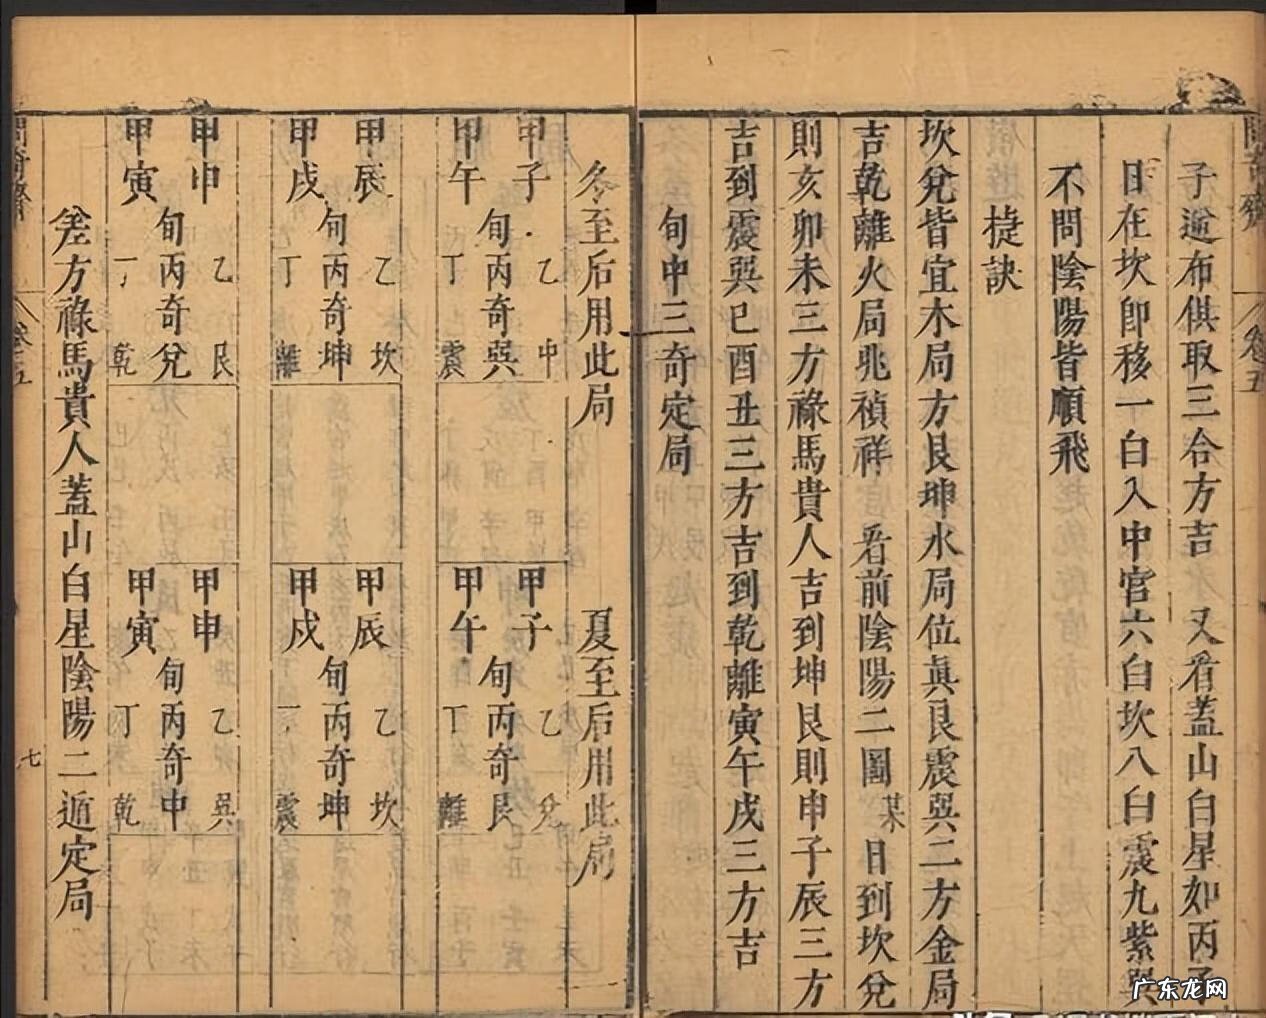 子遁布供取三合方吉 又看蓋山白星如丙子
日在坎即移一白入中官六白坎八白震九紫巽
不問陰陽皆順飛
捷訣
坎兌皆宜木局方艮坤水局位真艮震巽二方金局
吉乾離火局兆禎祥 看前陰陽二圖某日到坎兌
則亥卯未三方祿馬貴人吉到坤艮則申子辰三方
吉到震巽巳酉丑三方吉到乾離寅午戌三方吉
旬中三奇定局
卷五
冬至后用此局 夏至后用此局
甲子 甲午 旬 乙中 丙奇巽 丁震
甲子 甲午 旬 乙兌 丙奇艮 丁離
甲辰 甲戌 旬 乙坎 丙奇坤 丁離
甲辰 甲戌 旬 乙坎 丙奇坤 丁震
甲申 甲寅 旬 乙艮 丙奇兌 丁乾
甲申 甲寅 旬 乙巽 丙奇中 丁乾
方祿馬貴人蓋山白星陰陽二遁定局
七
广东龙网